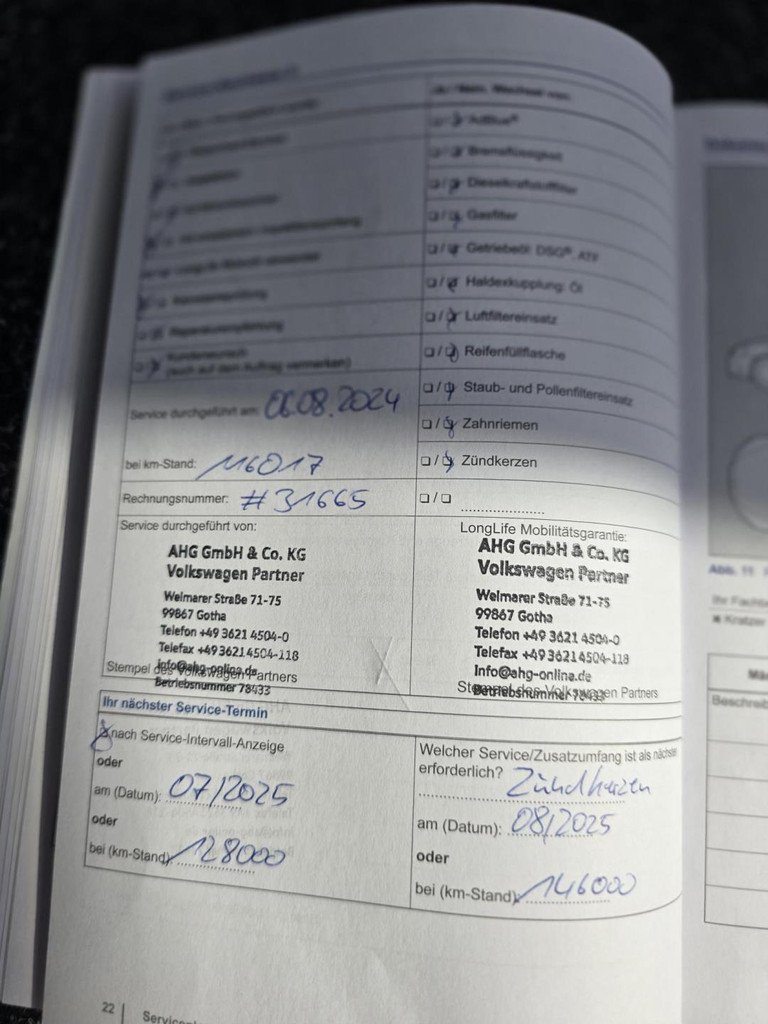 AdBlue®
Bremsflüssigkeit
Dieselkraftstofffilter
Gasfilter
Getriebeöl: DSG®, ATF
Haldexkupplung: Öl
Luftfiltereinsatz
Reifenfüllflasche
Staub- und Pollenfiltereinsatz
Zahnriemen
Zündkerzen
(auch auf dem Auftrag vermerken)
Service durchgeführt am: 06.08.2024
bei km-Stand: 116017
Rechnungsnummer: #31665
Service durchgeführt von:
AHG GmbH & Co. KG
Volkswagen Partner
Weimarer Straße 71-75
99867 Gotha
Telefon +49 3621 4504-0
Telefax +49 3621 4504-118
info@ahg-online.de
Stempel des Volkswagen Partners
Betriebsnummer 78433
LongLife Mobilitätsgarantie:
AHG GmbH & Co. KG
Volkswagen Partner
Weimarer Straße 71-75
99867 Gotha
Telefon +49 3621 4504-0
Telefax +49 3621 4504-118
Info@ahg-online.de
Stempel des Volkswagen Partners
Betriebsnummer 78433
Ihr nächster Service-Termin
nach Service-Intervall-Anzeige
oder
am (Datum): 07/2025
oder
bei (km-Stand): 128000
Welcher Service/Zusatzumfang ist als nächster
erforderlich? Zündkerzen
am (Datum): 08/2025
oder
bei (km-Stand): 146000
22
Abb. 11
Kratzer